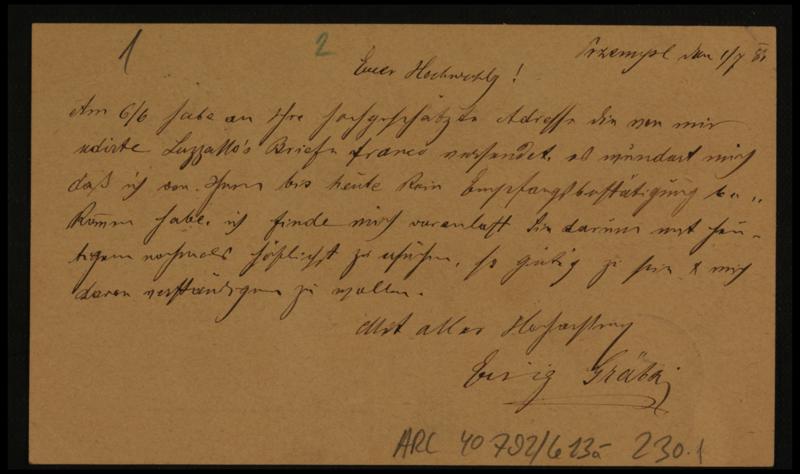 1 2
Przemysl den 1/7 83
Euer Hochwohlg!
Am 6/6 habe an Ihre hochgeschätzte Adresse die von mir
edirte Luzzatto's Briefe franco versendet, es wundert mich
daß ich von Ihnen bis heute kein Empfangsbestätigung be„
kommen habe, ich finde mich veranlaßt Sie darum mit heu-
tigem nochmals höflichst zu ersuchen, so gütig zu sein & mich
davon verständigen zu wollen.
Mit aller Hochachtung
Eisig Gräber
ARC 40 792/6 13a 230.1